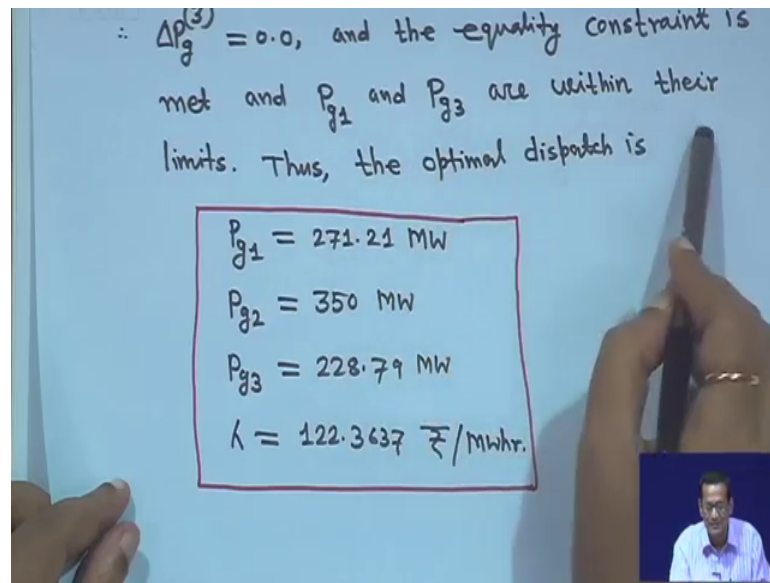 ∴ ΔPg⁽³⁾ = 0.0, and the equality constraint is
met and Pg1 and Pg3 are within their
limits. Thus, the optimal dispatch is
Pg1 = 271.21 MW
Pg2 = 350 MW
Pg3 = 228.79 MW
λ = 122.3637 ₹/Mwhr.